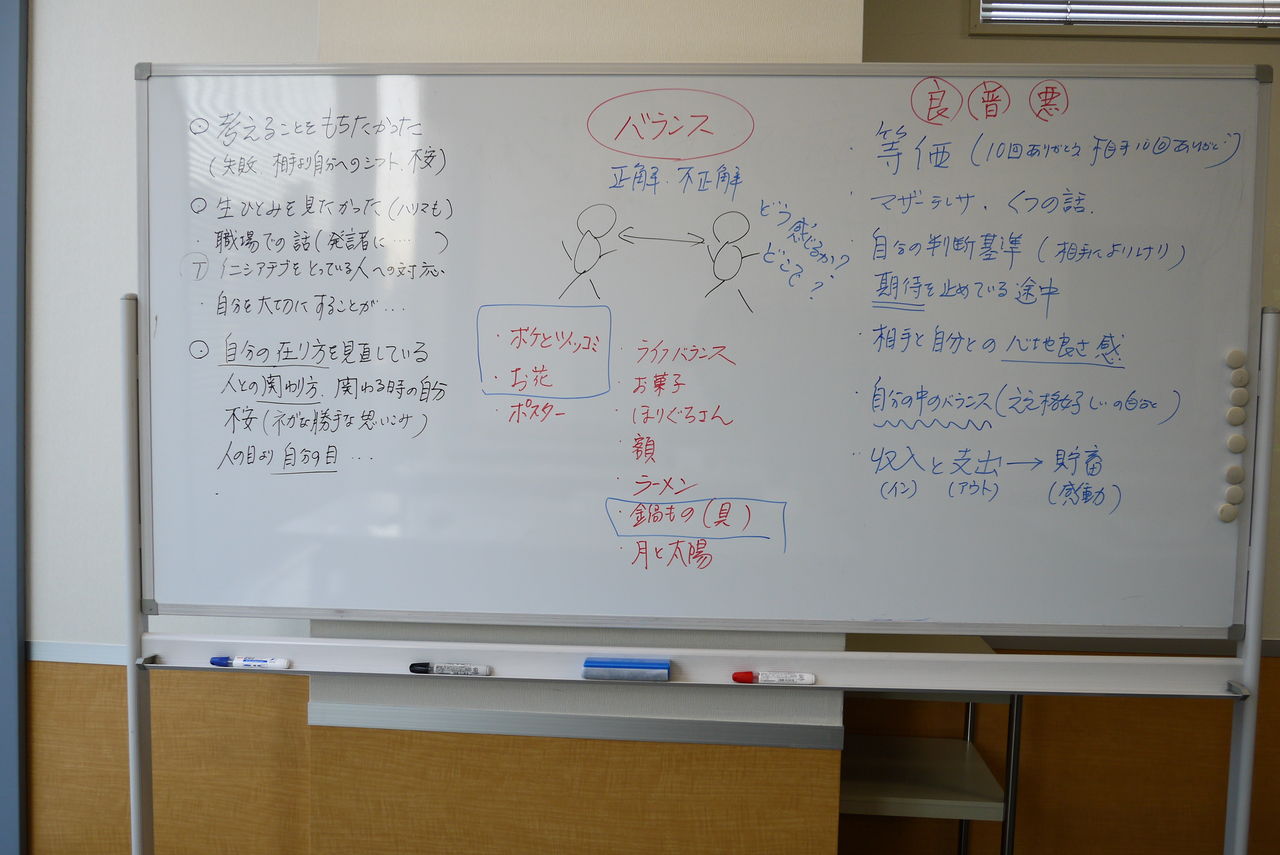 考えることをもちたかった
(失敗、相手より自分へのシフト、不安)
生ひとみを見たかった(ハリマも)
・職場での話(発言者に‥‥)
イニシアチブをとっている人への対応
・自分を大切にすることが…
自分の在り方を見直している
人との関わり方、関わる時の自分
不安(ネガな勝手な思いこみ)
人の目より自分の目…
バランス
正解・不正解
どう感じるか?
どこで?
・ボケとツッコミ
・お花
・ポスター
・ライフバランス
・お菓子
・ほりぐちさん
・額
・ラーメン
・鍋もの(具)
・月と太陽
良 普 悪
・等価(10回ありがとう 相手10回ありがとう)
・マザーテレサ、くつの話.
・自分の判断基準(相手によりけり)
期待を止めている途中
・相手と自分との心地良さ感
・自分の中のバランス(ええ格好しいの自分と)
・収入と支出→貯蓄
(イン) (アウト) (感動)